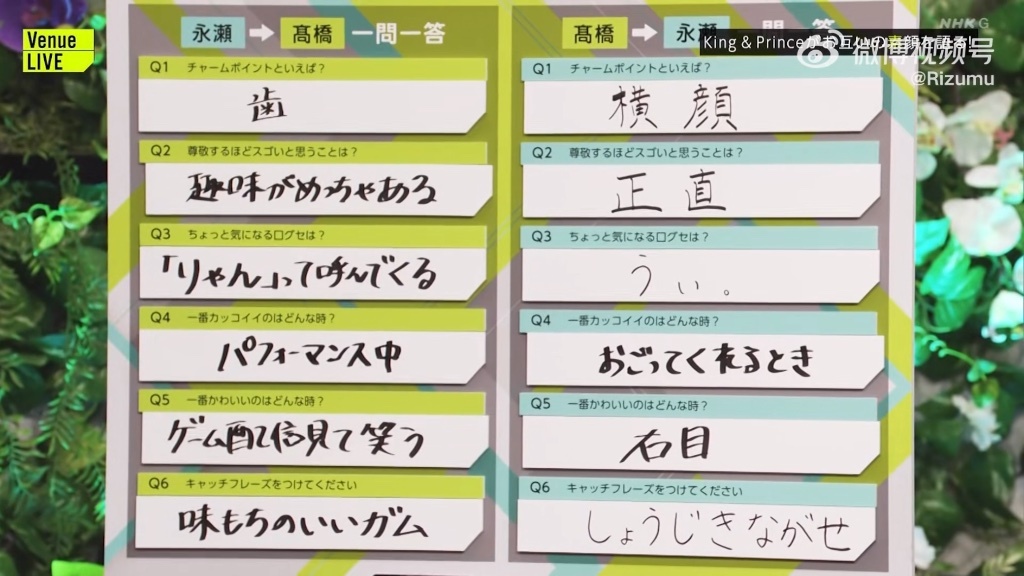 Venue
LIVE
NHK G
King & Princeがお互いの素顔を語る!
微博视频号
@Rizumu
永瀬 → 髙橋 一問一答
Q1 チャームポイントといえば?
歯
Q2 尊敬するほどスゴいと思うことは?
趣味がめっちゃある
Q3 ちょっと気になる口グセは?
「りゃん」って呼んでくる
Q4 一番カッコイイのはどんな時?
パフォーマンス中
Q5 一番かわいいのはどんな時?
ゲーム配信見て笑う
Q6 キャッチフレーズをつけてください
味もちのいいガム
髙橋 → 永瀬 一問一答
Q1 チャームポイントといえば?
横顔
Q2 尊敬するほどスゴいと思うことは?
正直
Q3 ちょっと気になる口グセは?
うぃ。
Q4 一番カッコイイのはどんな時?
おごってくれるとき
Q5 一番かわいいのはどんな時?
右目
Q6 キャッチフレーズをつけてください
しょうじきながせ